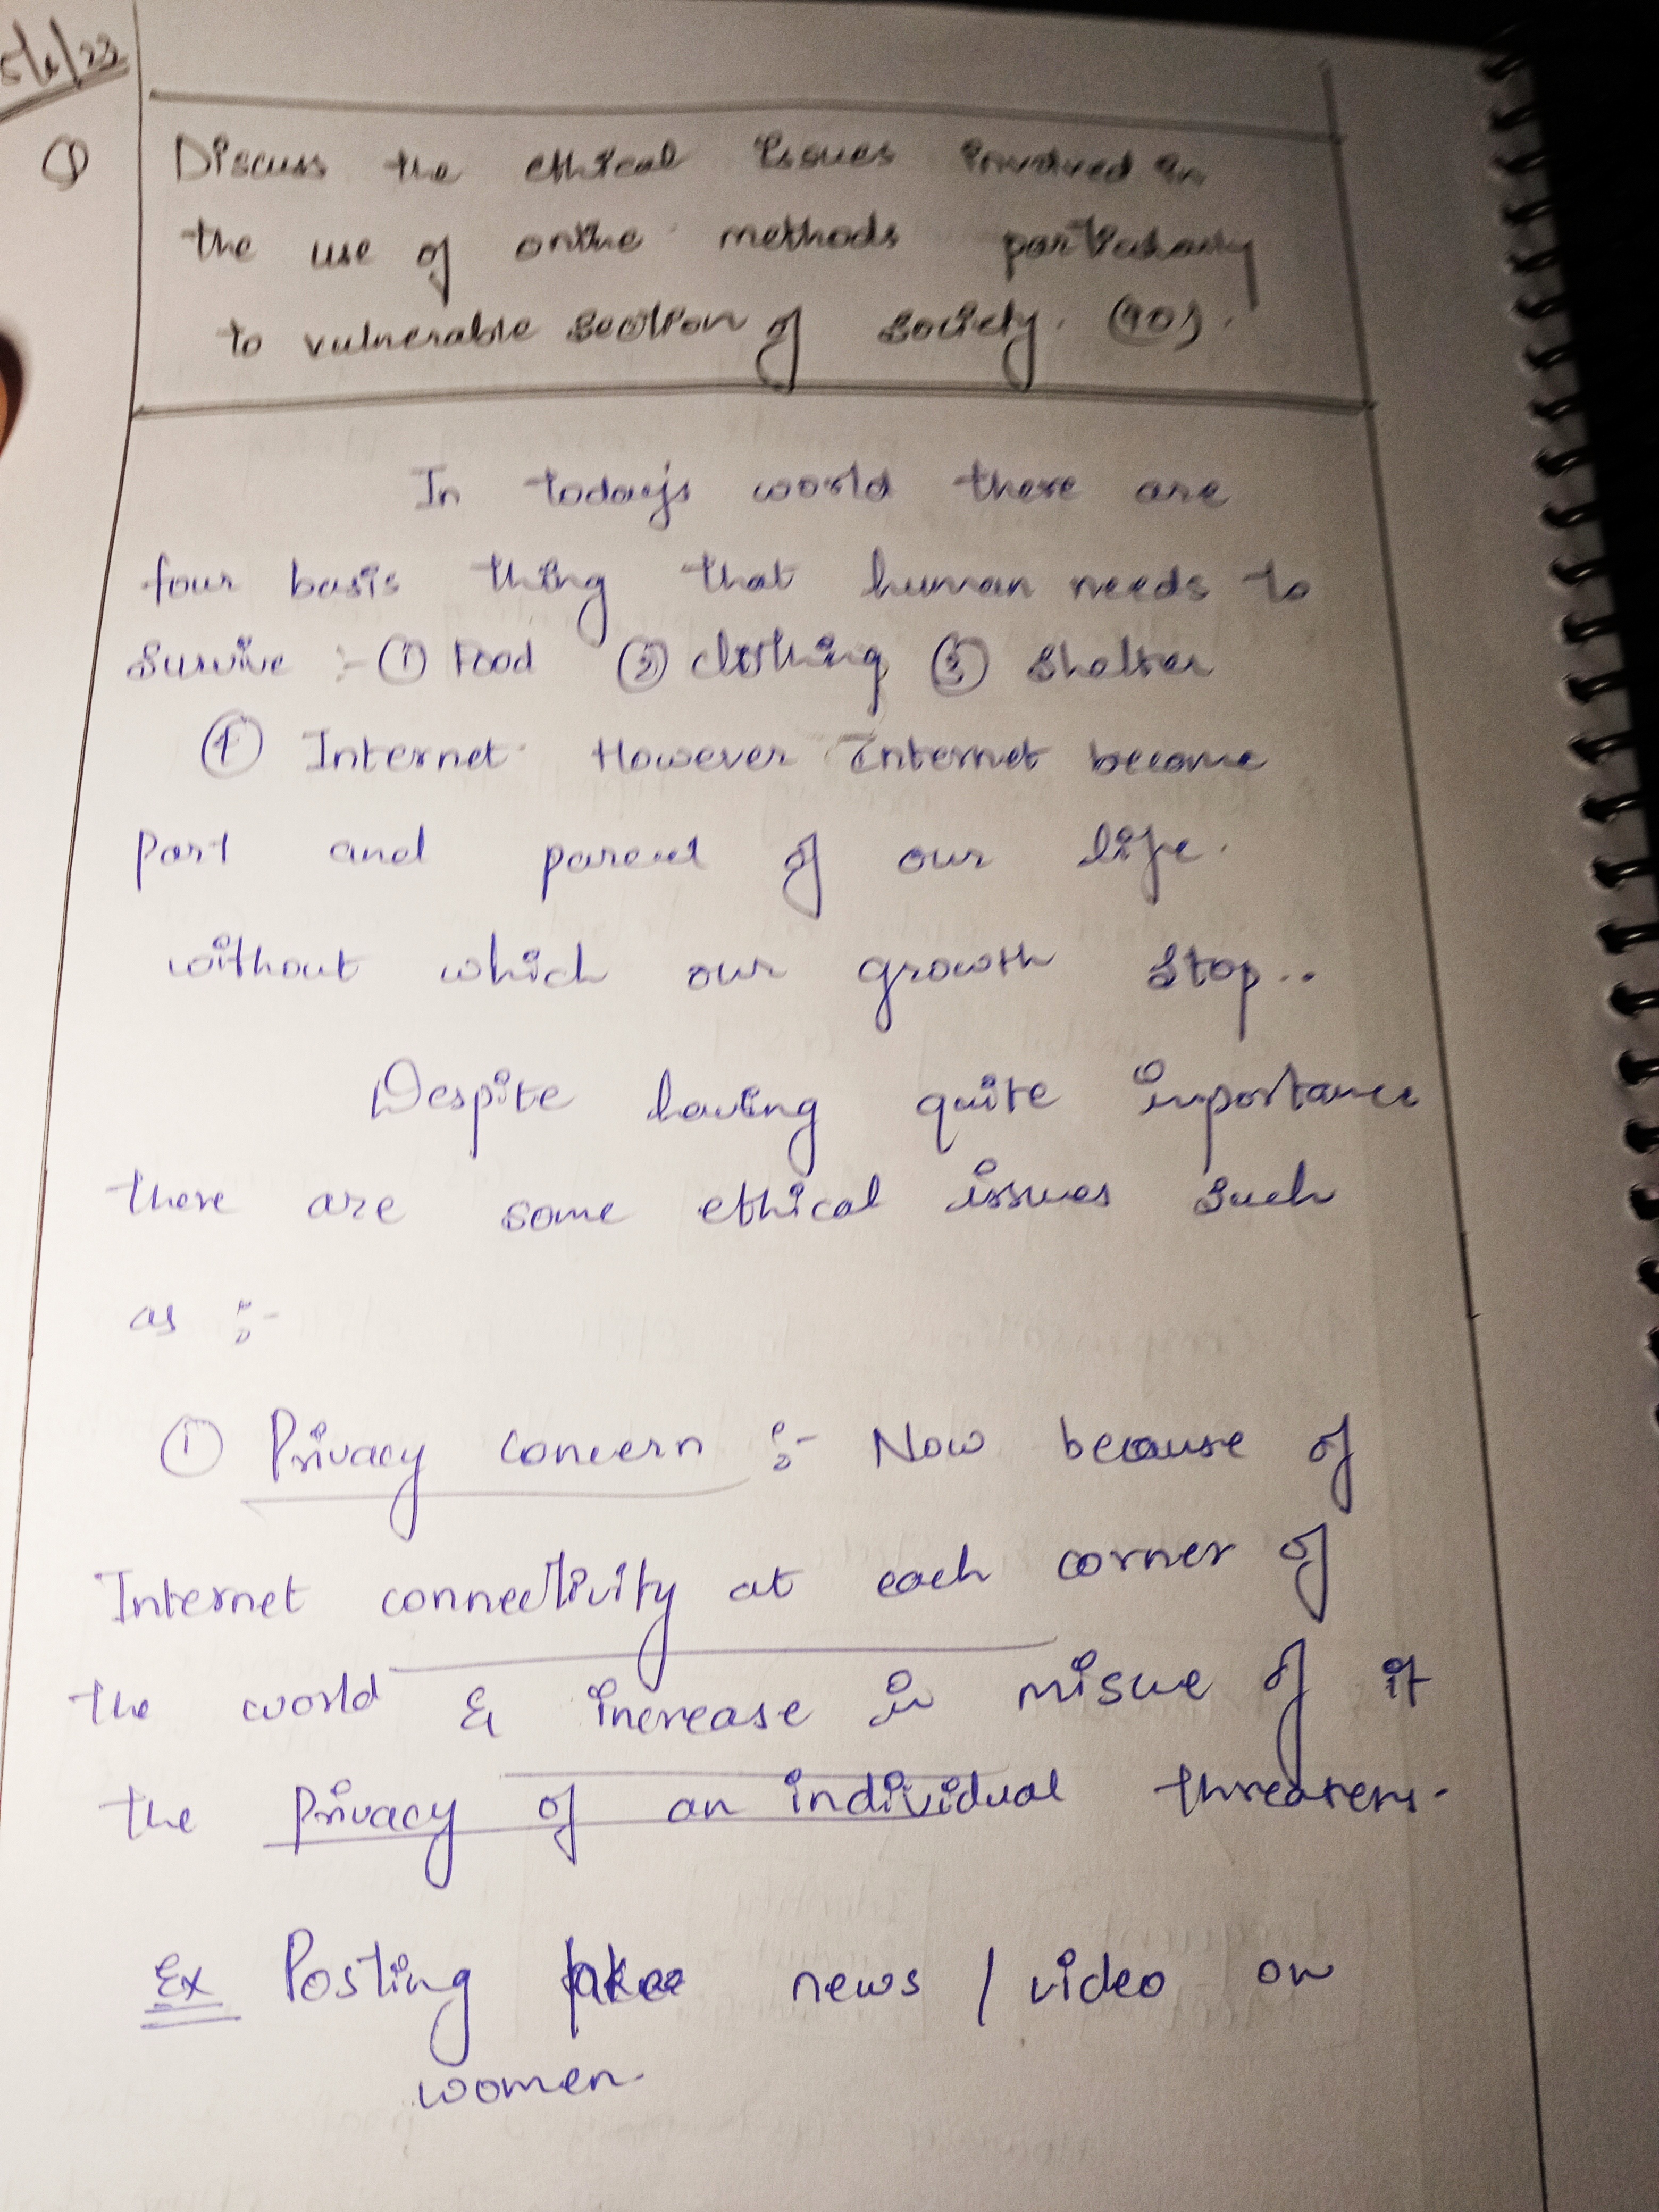 5/6/23
Q Discuss the ethical issues involved in
the use of online methods particularly
to vulnerable section of society. (10).
In today's world there are
four basis thing that human needs to
survive :- ① Food ② clothing ③ Shelter
④ Internet. However Internet become
part and parcel of our life.
without which our growth stop..
Despite having quite importance
there are some ethical issues such
as :-
① Privacy concern :- Now because of
Internet connectivity at each corner of
the world & increase in misue of it
the privacy of an individual threatens.
Ex Posting fake news / video on
women.